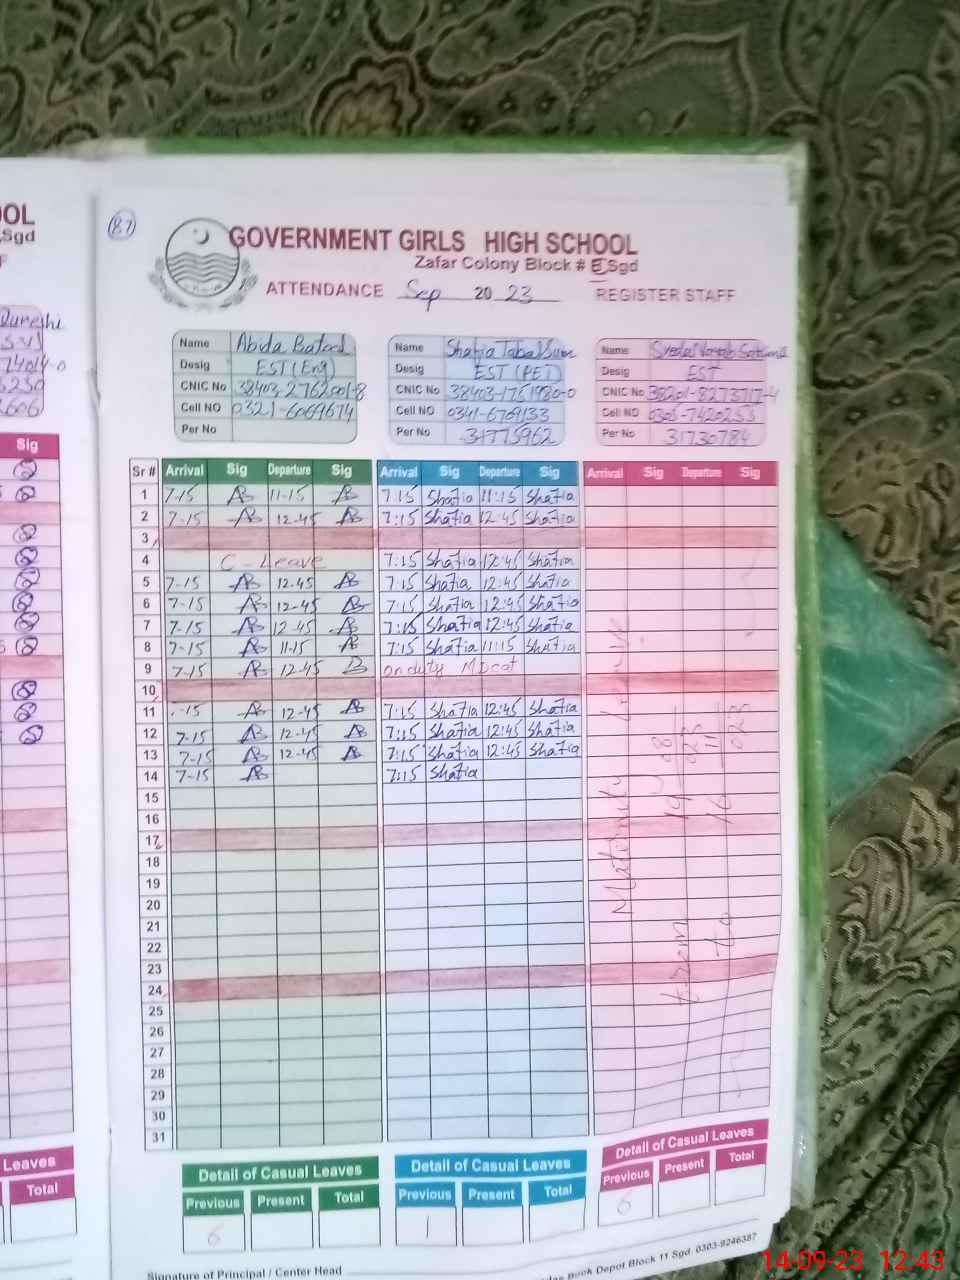 OOL
Sgd
Qureshi
74014-0
Sig
Leaves
Total
87
GOVERNMENT GIRLS HIGH SCHOOL
Zafar Colony Block # E Sgd
ATTENDANCE Sep 20 23 REGISTER STAFF
Name Abida Batool
Desig EST (Eng)
CNIC No 38403-2762001-8
Cell NO 0321-6069674
Per No
Name Shafia
Desig EST (PET)
CNIC No 38403-1751980-0
Cell NO 0341-6769133
Per No 31775962
Name Syeda
Desig EST
CNIC No 38201-8273717-4
Cell NO 0305-7420253
Per No 31730784
Sr # Arrival Sig Departure Sig Arrival Sig Departure Sig Arrival Sig Departure Sig
1 7-15 AB 11-15 AB 7:15 Shafia 11:15 Shafia
2 7-15 AB 12-45 AB 7:15 Shafia 12:45 Shafia
3
4 C-Leave 7:15 Shafia 12:45 Shafia
5 7-15 AB 12-45 AB 7:15 Shafia 12:45 Shafia
6 7-15 AB 12-45 AB 7:15 Shafia 12:45 Shafia
7 7-15 AB 12-45 AB 7:15 Shafia 12:45 Shafia
8 7-15 AB 11-15 AB 7:15 Shafia 11:15 Shafia
9 7-15 AB 12-45 B on duty Mdcat
10
11 -15 AB 12-45 AB 7:15 Shafia 12:45 Shafia
12 7-15 AB 12-45 AB 7:15 Shafia 12:45 Shafia
13 7-15 AB 12-45 AB 7:15 Shafia 12:45 Shafia
14 7-15 AB 7:15 Shafia
15
16
17
18
19
20
21
22
23
24
25
26
27
28
29
30
31
Maternity Leave
from 19 8 023
to 16 11 023
Detail of Casual Leaves
Previous Present Total
6
Detail of Casual Leaves
Previous Present Total
1
Detail of Casual Leaves
Previous Present Total
6
Signature of Principal / Center Head
Book Depot Block 11 Sgd. 0303-9246387
14-09-23 12:43